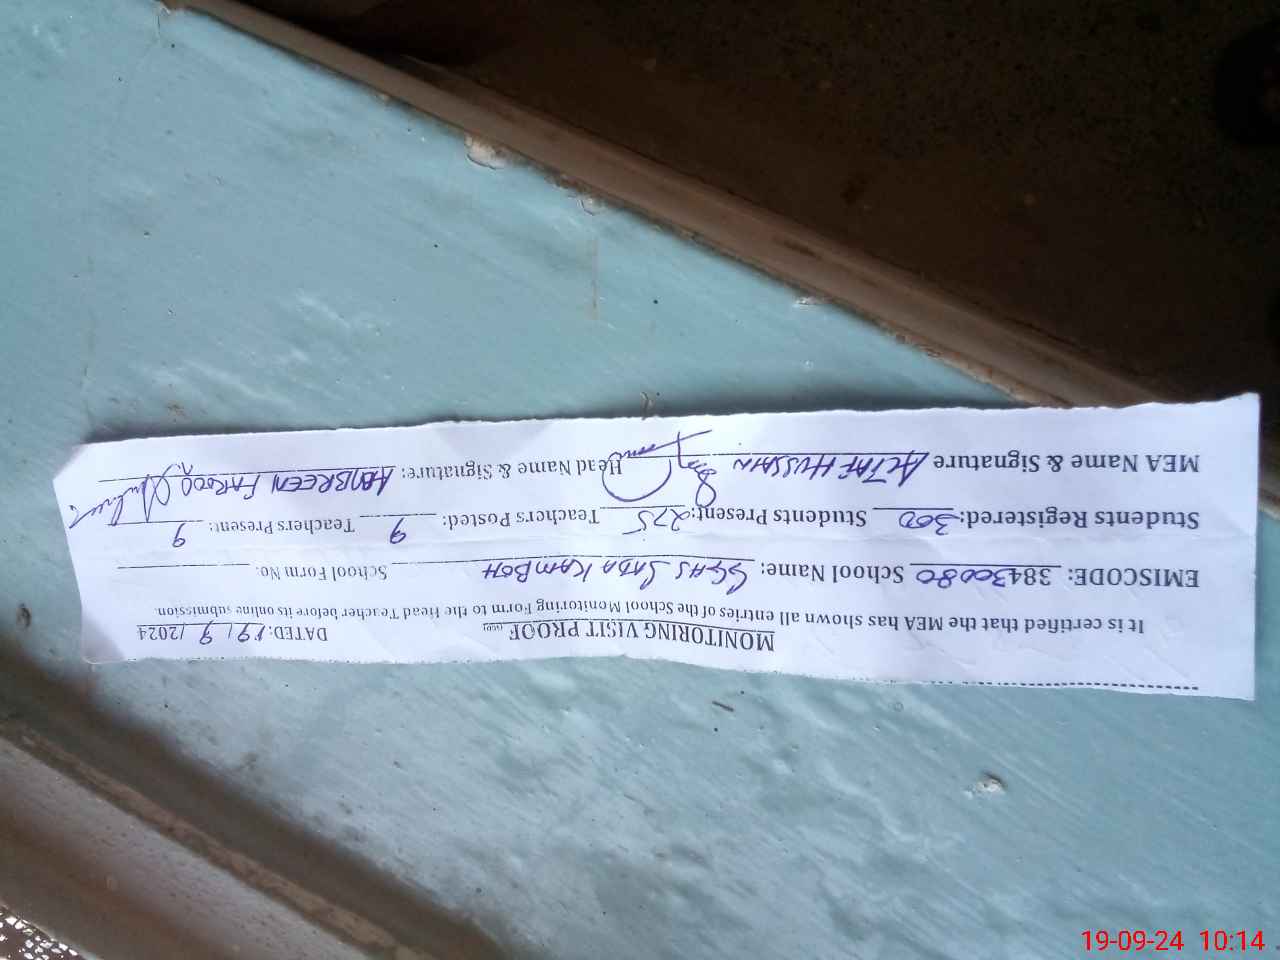 MONITORING VISIT PROOF DATED: 19 / 9 / 2024
It is certified that the MEA has shown all entries of the School Monitoring Form to the Head Teacher before its online submission.
EMISCODE: 38430080 School Name: GGHS SADA KAMBOH School Form No:
Students Registered: 300 Students Present: 275 Teachers Posted: 9 Teachers Present: 9
MEA Name & Signature ALTAF HUSSAIN Head Name & Signature: AMBREEN FAROOQ
19-09-24 10:14